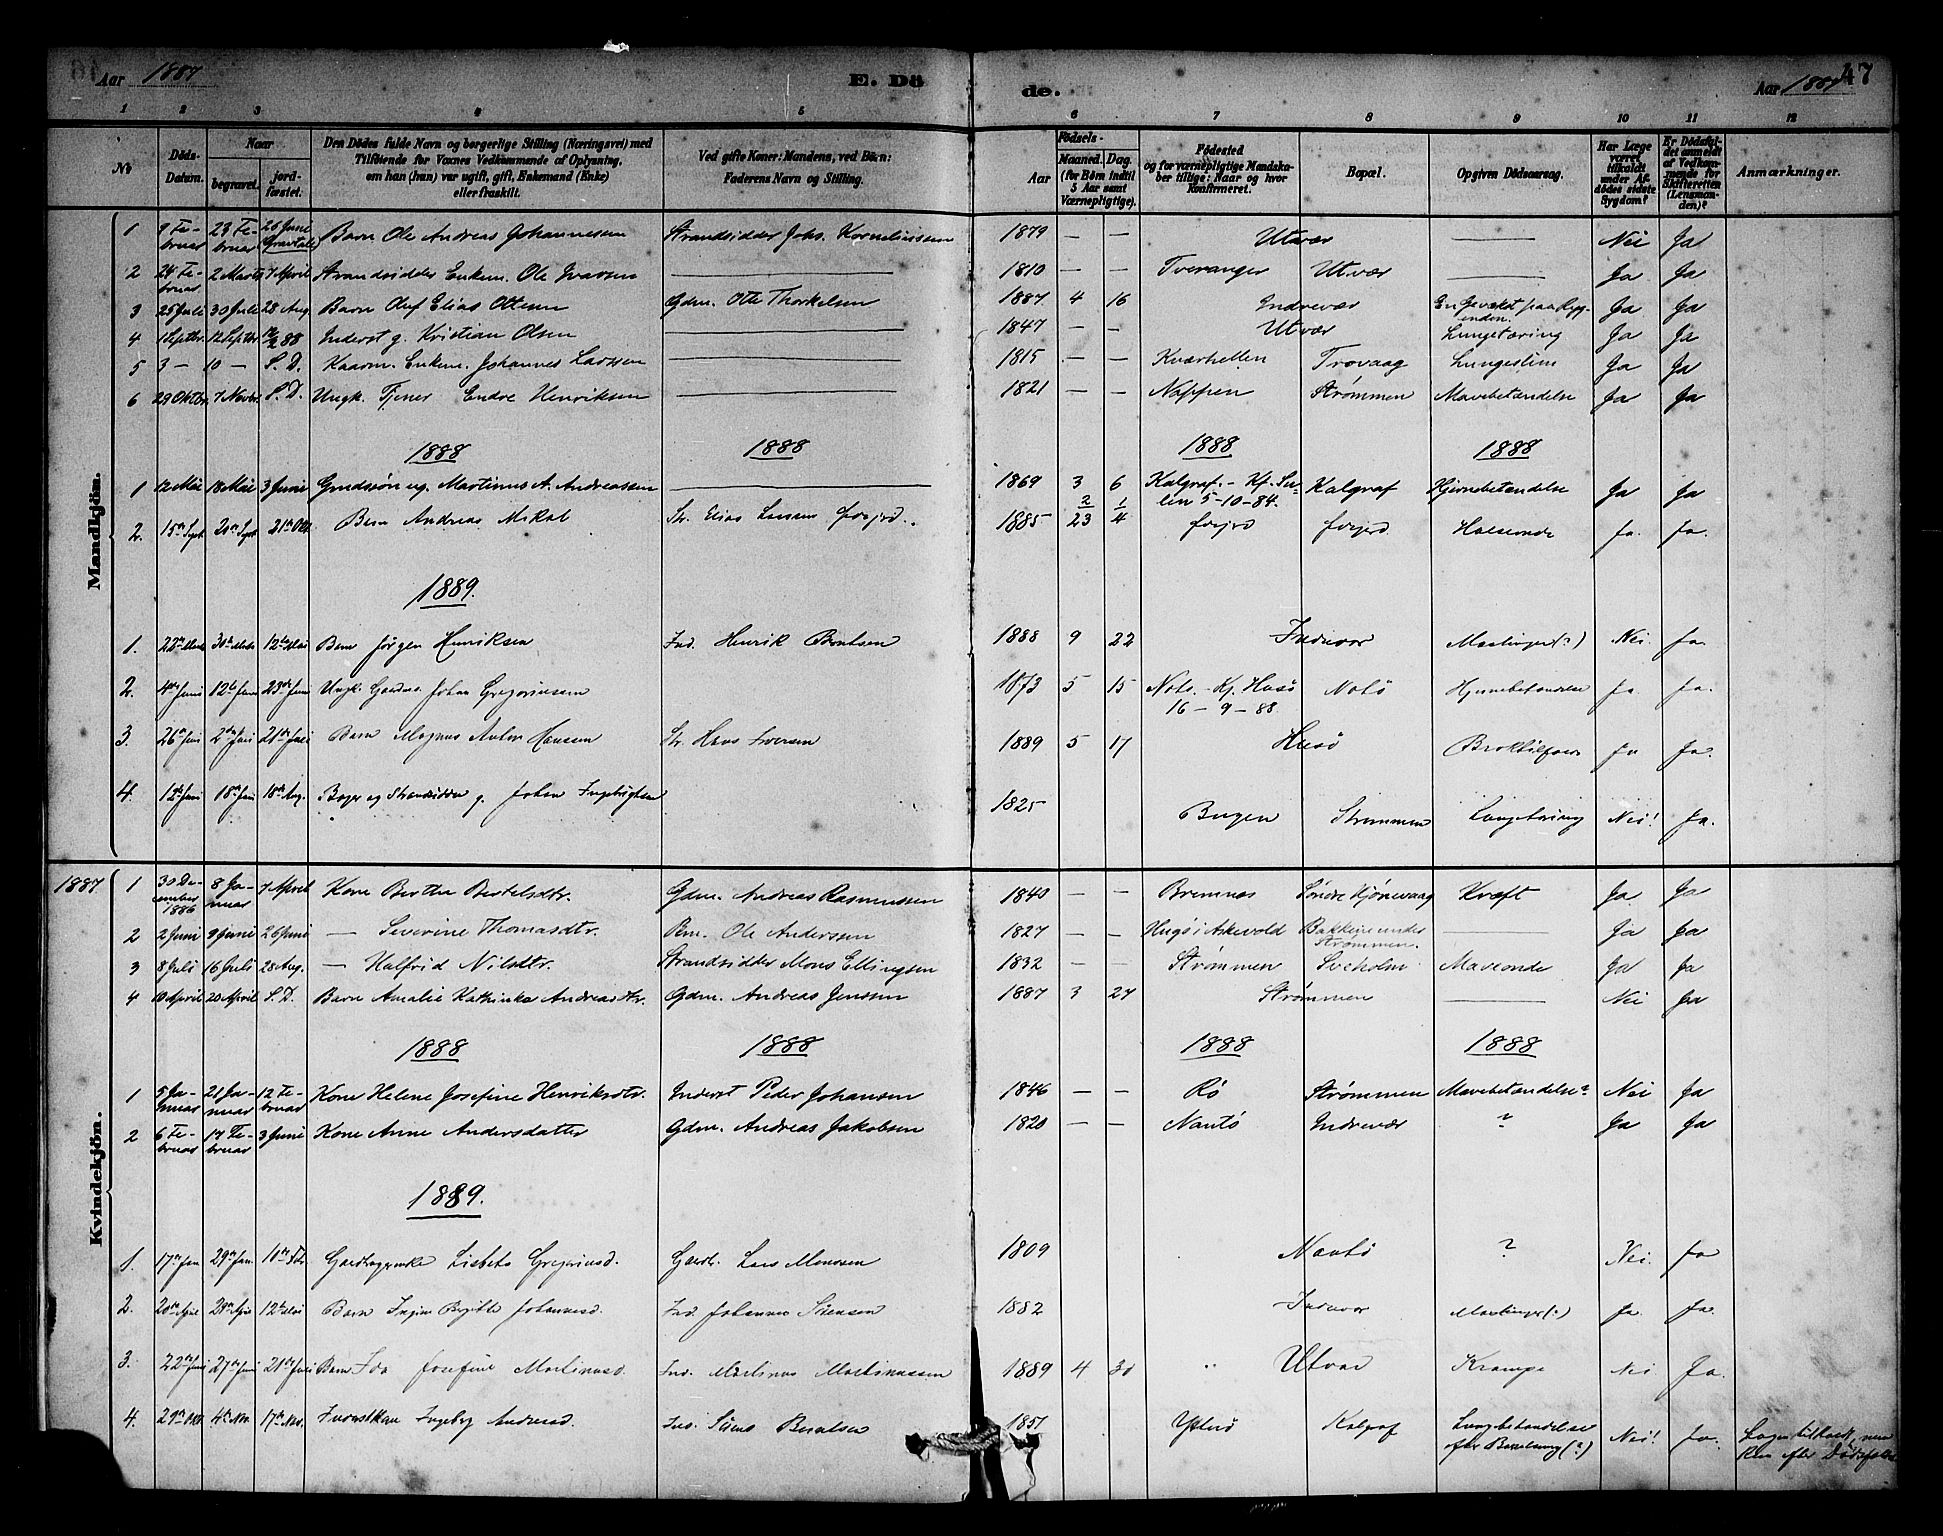 Aar 1887
E. Dö
de.
Aar 1887
47
1 2 3 4 5 6 7 8 9 10 11 12
No
Döds-Datum.
Naar
begravet.
jord-fæstet.
Den Dödes fulde Navn og borgerlige Stilling (Næringsvei) med
Tilföiende for Voxnes Vedkommende af Oplysning,
om han (hun) var ugift, gift, Enkemand (Enke)
eller fraskilt.
Ved gifte Koner: Mandens, ved Börn:
Faderens Navn og Stilling.
Födsels-
Aar
Maaned. Dag.
(for Börn indtil
5 Aar samt
Værnepligtige).
Födested
og for værnepligtige Mandska-
ber tillige: Naar og hvor
Konfirmeret.
Bopæl.
Opgiven Dödsaarsag.
Har Læge
været
tilkaldt
under Af-
dödes sidste
Sygdom?
Er Dödsfal-
det anmeldt
af Vedkom-
mende for
Skifteretten
(Lensman-
den)?
Anmærkninger.
Mandkjön.
1 9 Februar 23 Februar 26 Juni Gravtale Barn Ole Andreas Johannesen Strandsidder Johs. Korneliussen 1879 — — Utvær — Nei Ja
2 24 Februar 2 Marts 7 April Strandsidder Enkem. Ole Ivarsen — 1810 — — Tveranger Utvær — Ja Ja
3 25 Juli 30 Juli 28 Aug. Barn Oluf Elias Ottesen Gdm. Otte Thorkelsen 1887 4 16 Indrevær En Gevækst paa Ryg-
enden. Ja Ja
4 1 Septbr. 12 Septbr. 12/2 88 Inderst g. Kristian Olsen — 1847 — — Utvær Lungetæring Ja Ja
5 3 — 10 — S. D. Kaarm. Enkem. Johannes Larssen — 1815 — — Kværhellen Trovaag Lungeslim Ja Ja
6 29 Oktbr. 7 Novbr. S. D. Ungk. Tjener Endre Henriksen — 1821 — — Nappen Strømmen Mavebetændelse Ja Ja
1888 1888 1888 1888
1 12 Mai 18 Mai 3 Juni Grdssøn ug. Martinus A. Andreassen — 1869 3 6 Kalgraf. - Kf. Su-
len 5-10-84. Kalgraf Hjernebetændelse Ja Ja
2. 15de Sept 20de Sept 21de Okt Barn Andreas Mikal Str. Elias Larsen 1885 2/23 1/4 Halsonde Ja. Ja.
1889.
1. 30te 12te Mai Barn Jørgen Henriksen Ind. Henrik Berntsen 1888 9 22 Indrevær Mæslinger (?) Nei. Ja.
2. 4de Juni 12te Juni 23de Juni Ungk. Gaardm. Johan Gregoriussen 1873 5 15 Notø. - Kf. Husø
16 - 9 - 88. Notø Hjernebetændelse Ja. Ja.
3. 26de Juni 2den Juli 21de Juli Barn Magnus Anton Hansen Str. Hans Iversen 1889 5 17 Husø Ja Ja.
4. 12te Juni 18de Juni 18de Aug. Bager og Strandsidder g. Johan Ingebrigtsen 1825 Bugen Strømmen Lungetæring Nei! Ja.
Kvindekjön.
1887 1 30 December 1886 8 Januar 7 April Kone Berthe Bertelsdtr. Gdm. Andreas Rasmussen 1840 — — Bremnes Søndre Hjønevaag Kræft Ja Ja
2 2 Juni 9 Juni 26 Juni — Severine Thomasdtr. Bm. Ole Anderssen 1827 — — Hugø i Askevold Bakken under
Strømmen. — Ja Ja
3 8 Juli 16 Juli 28 Aug. — Kalfrid Nilsdtr. Strandsidder Mons Ellingsen 1832 — — Strømmen Sveholm Maveonde Ja Ja
4 10 April 20 April S. D. Barn Amalie Kathinka Andreasdtr. Gdm. Andreas Jenssen 1887 3 27 Strømmen — Nei Ja
1888 1888 1888 1888
1 5 Januar 21 Januar 12 Februar Kone Helene Josefine Henriksdtr. Inderst Peder Johansen 1846 — — Rø Strømmen Mavebetændelse? Nei Ja
2 6 Februar 17 Februar 3 Juni Kone Anne Andersdatter Gdm. Andreas Jakobsen 1820 — — Nautø Indrevær ? Ja Ja
1889.
1. 17de Jan 29de Jan. 10de Feb. Lisbeto Gregoriusd. Gaardbr. Lars Monssen 1809 Nautø ? Nei. Ja
2. 20de April 28de April 12te Mai Barn Ingine Birgitte Johannesd. Ind. Johannes Sørensen 1882 Indrevær Mæslinger (?) Ja. Ja.
3. 22de Juni 27de Juni 21de Juli Barn Ida Josefine Martinusd. Ind. Martinus Martinussen 1889 4 30 " Utvær Krampe Nei Ja.
4. 29de Okt 4de Nov. 17de Nov. Inderstkone Ingeborg Andersd. Ind. Sørens Berntsen 1851 Kalgraf Lungebetændelse
efter Barselseng (?) Nei! Ja. Læge tilkaldt, men
kom efter Dødsfaldet